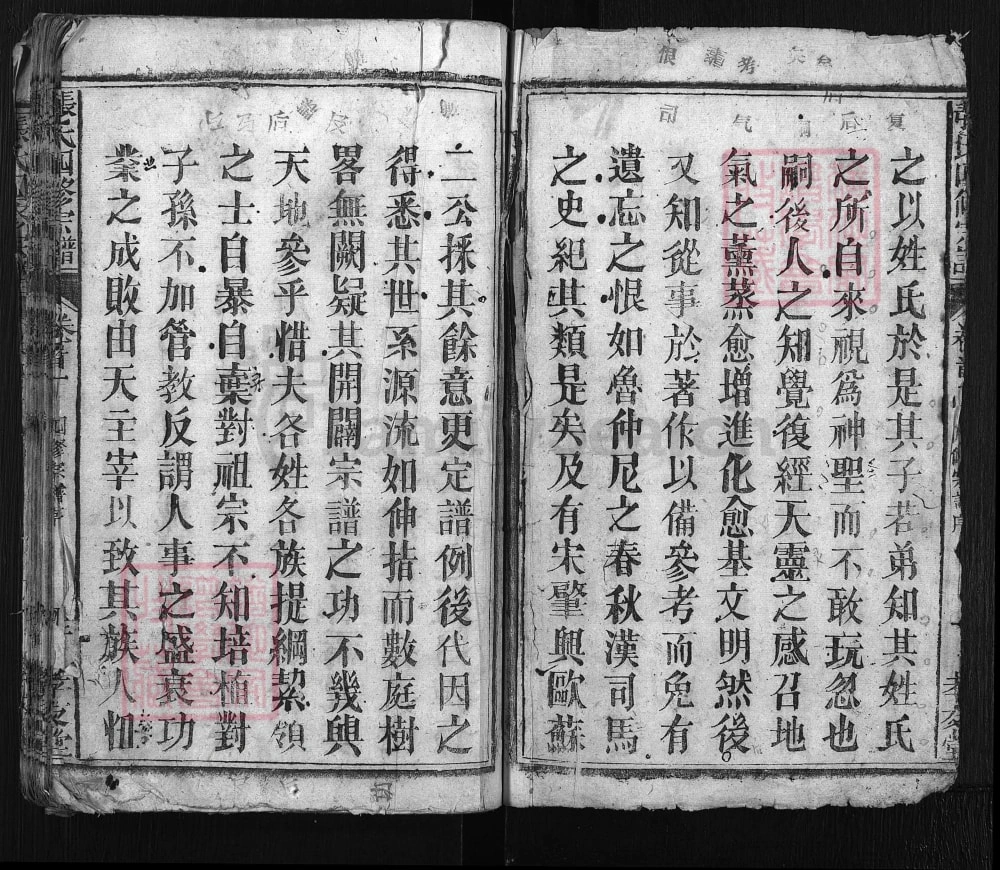 之以姓氏於是其子若弟知其姓氏
之所自來視爲神聖而不敢玩忽也
嗣後人之知覺復經天靈之感召地
氣之薰蒸愈增進化愈基文明然後
又知從事於著作以備參考而免有
遺忘之恨如魯仲尼之春秋漢司馬
之史紀其類是矣及有宋肇興歐蘇
二公採其餘意更定譜例後代因之
得悉其世系源流如伸指而數庭樹
畧無闕疑其開闢宗譜之功不幾興
天地參乎惜夫各姓各族提綱絜領
之士自暴自棄對祖宗不知培植對
子孫不加管教反謂人事之盛衰功
業之成敗由天主宰以致其族人忸
張氏四修宗譜
卷首
四修宗譜序
孝友堂